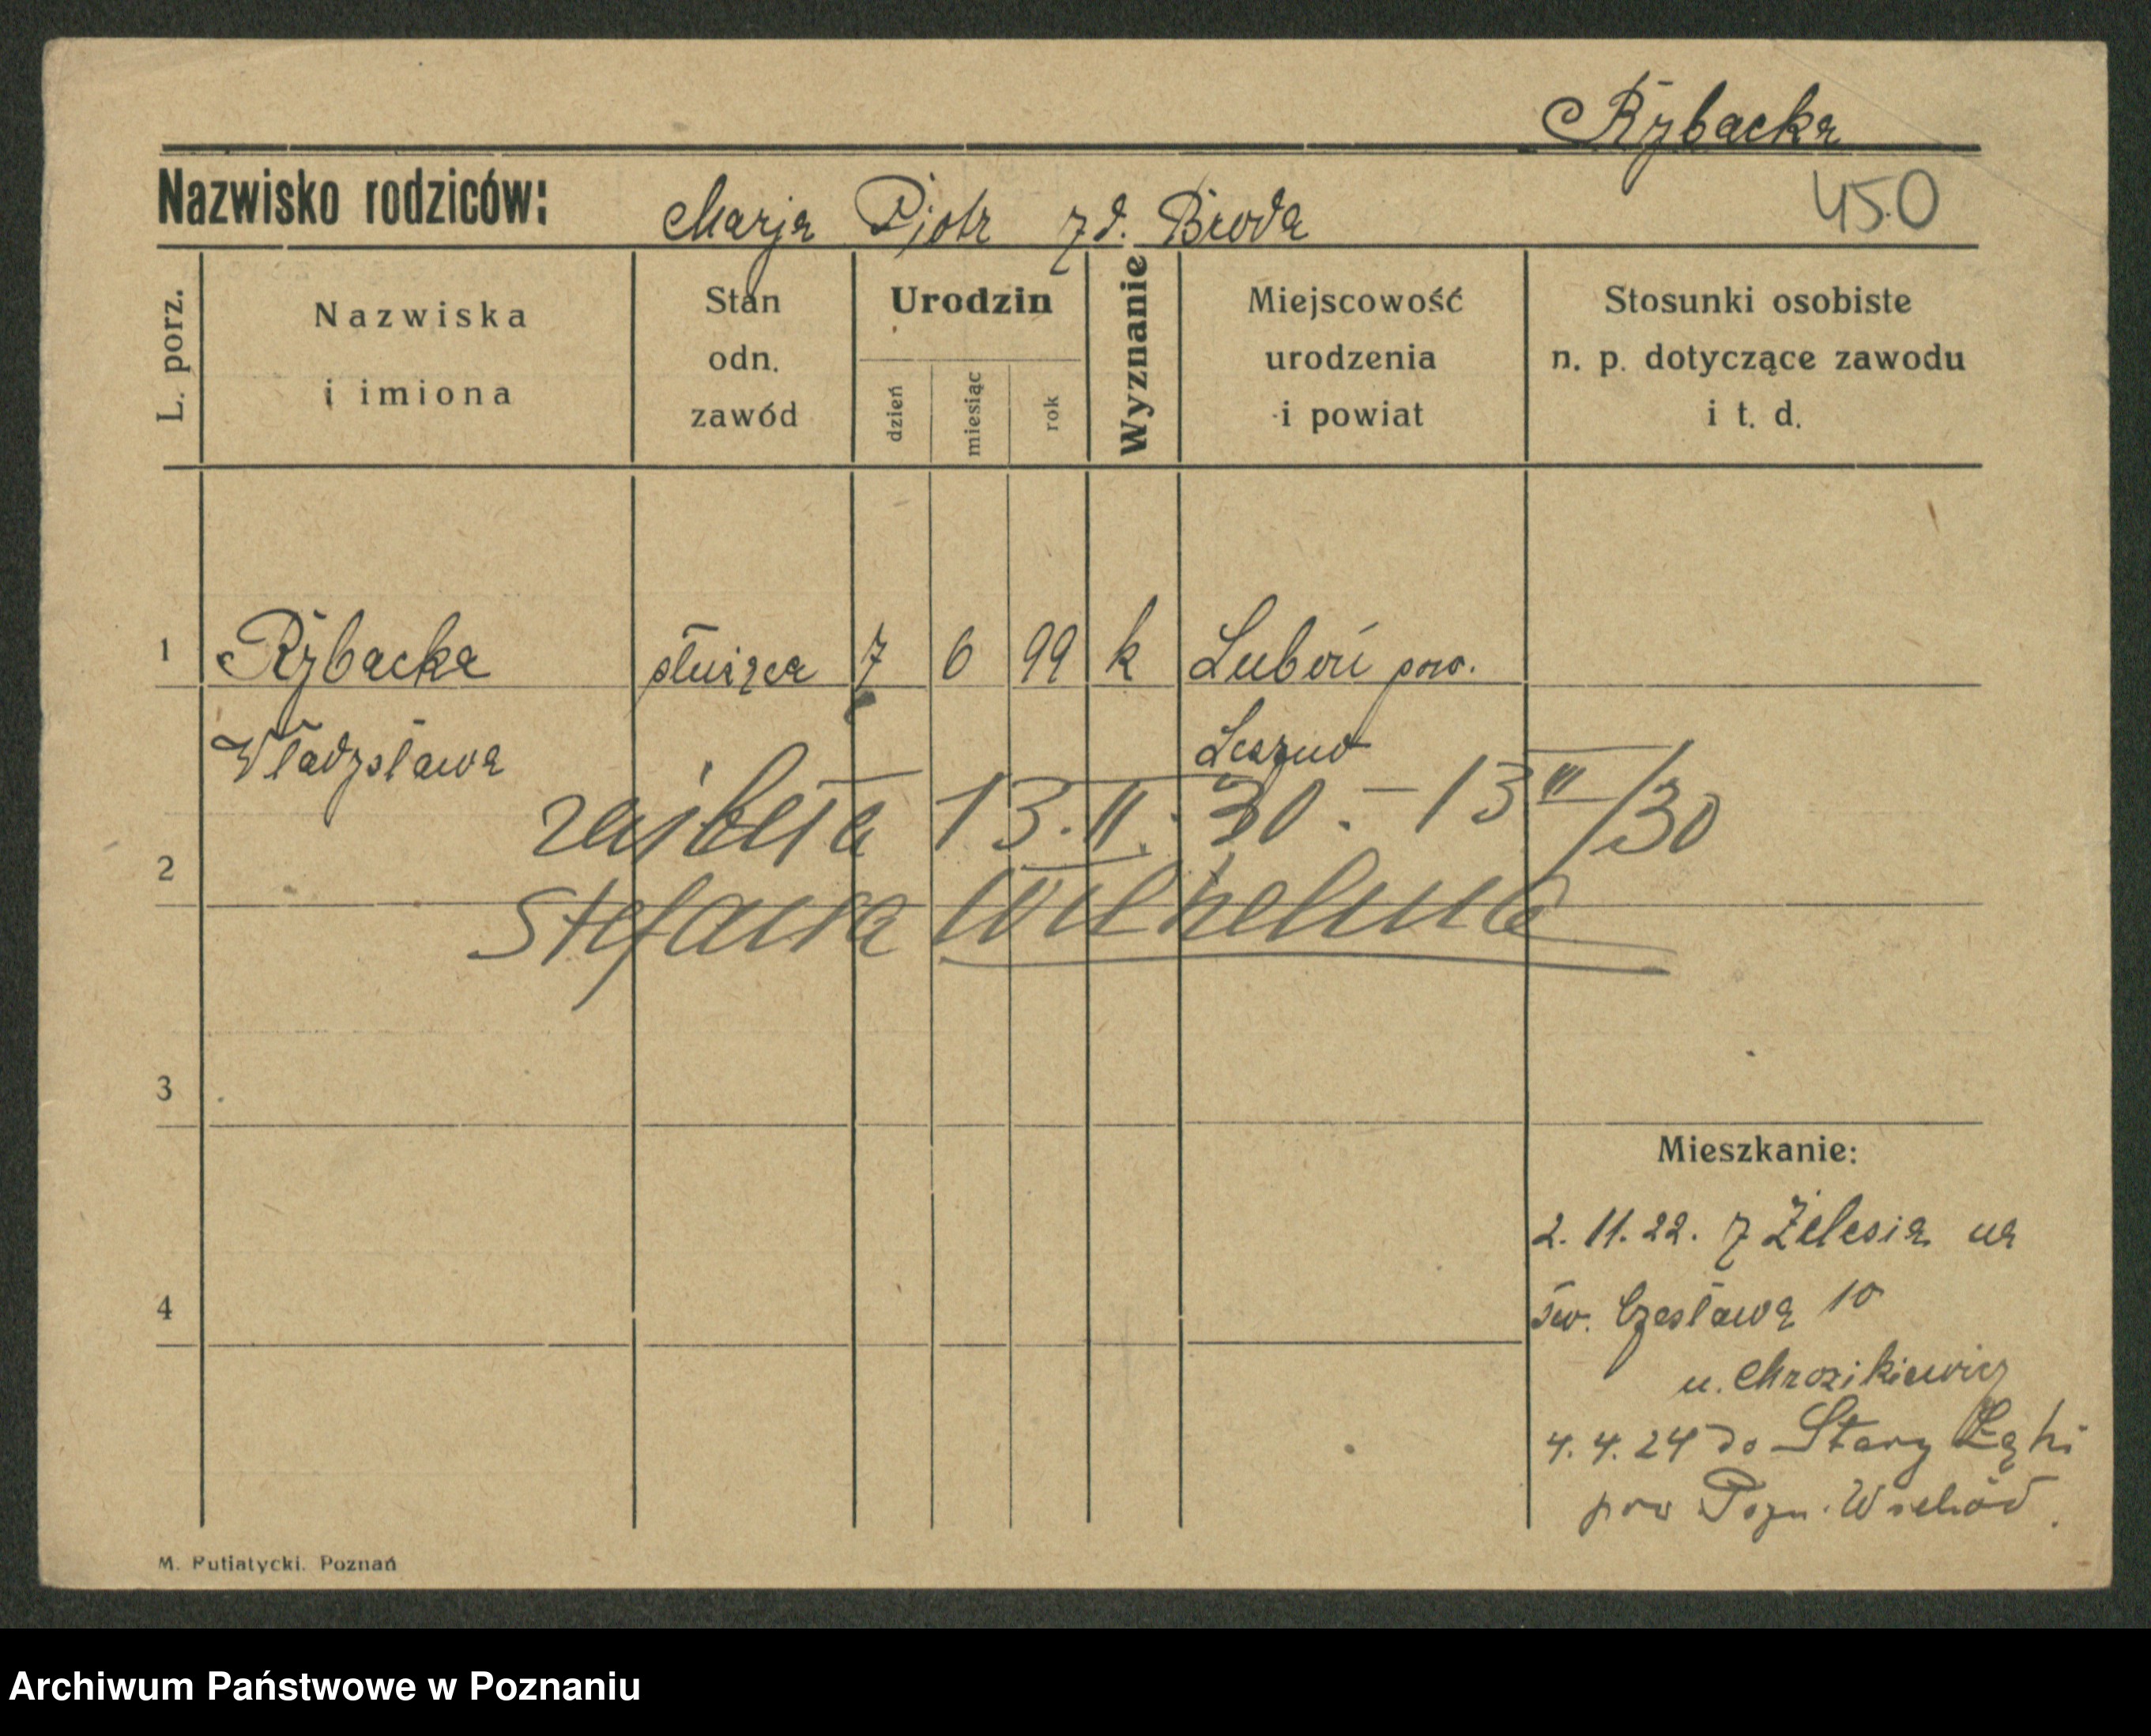 Rybacka
Nazwisko rodziców: Marja Pjotr zd. Broda
450
L. porz.
Nazwiska
i imiona
Stan
odn.
zawód
Urodzin
dzień
miesiąc
rok
Wyznanie
Miejscowość
urodzenia
i powiat
Stosunki osobiste
n. p. dotyczące zawodu
i t. d.
1 Rybacka służąca 7 6 99 k Luboń pow.
Władysława Leszno
13.II.30. - 13 II/30
2
Stefana Wilhelma
3
Mieszkanie:
2. 11. 22. z Żelesia na
4
św. Czesława 10
u. Mrozikiewicz
4. 4. 24 do Stary
pow Pozn. Wschód.
M. Putiatycki. Poznań
Archiwum Państwowe w Poznaniu